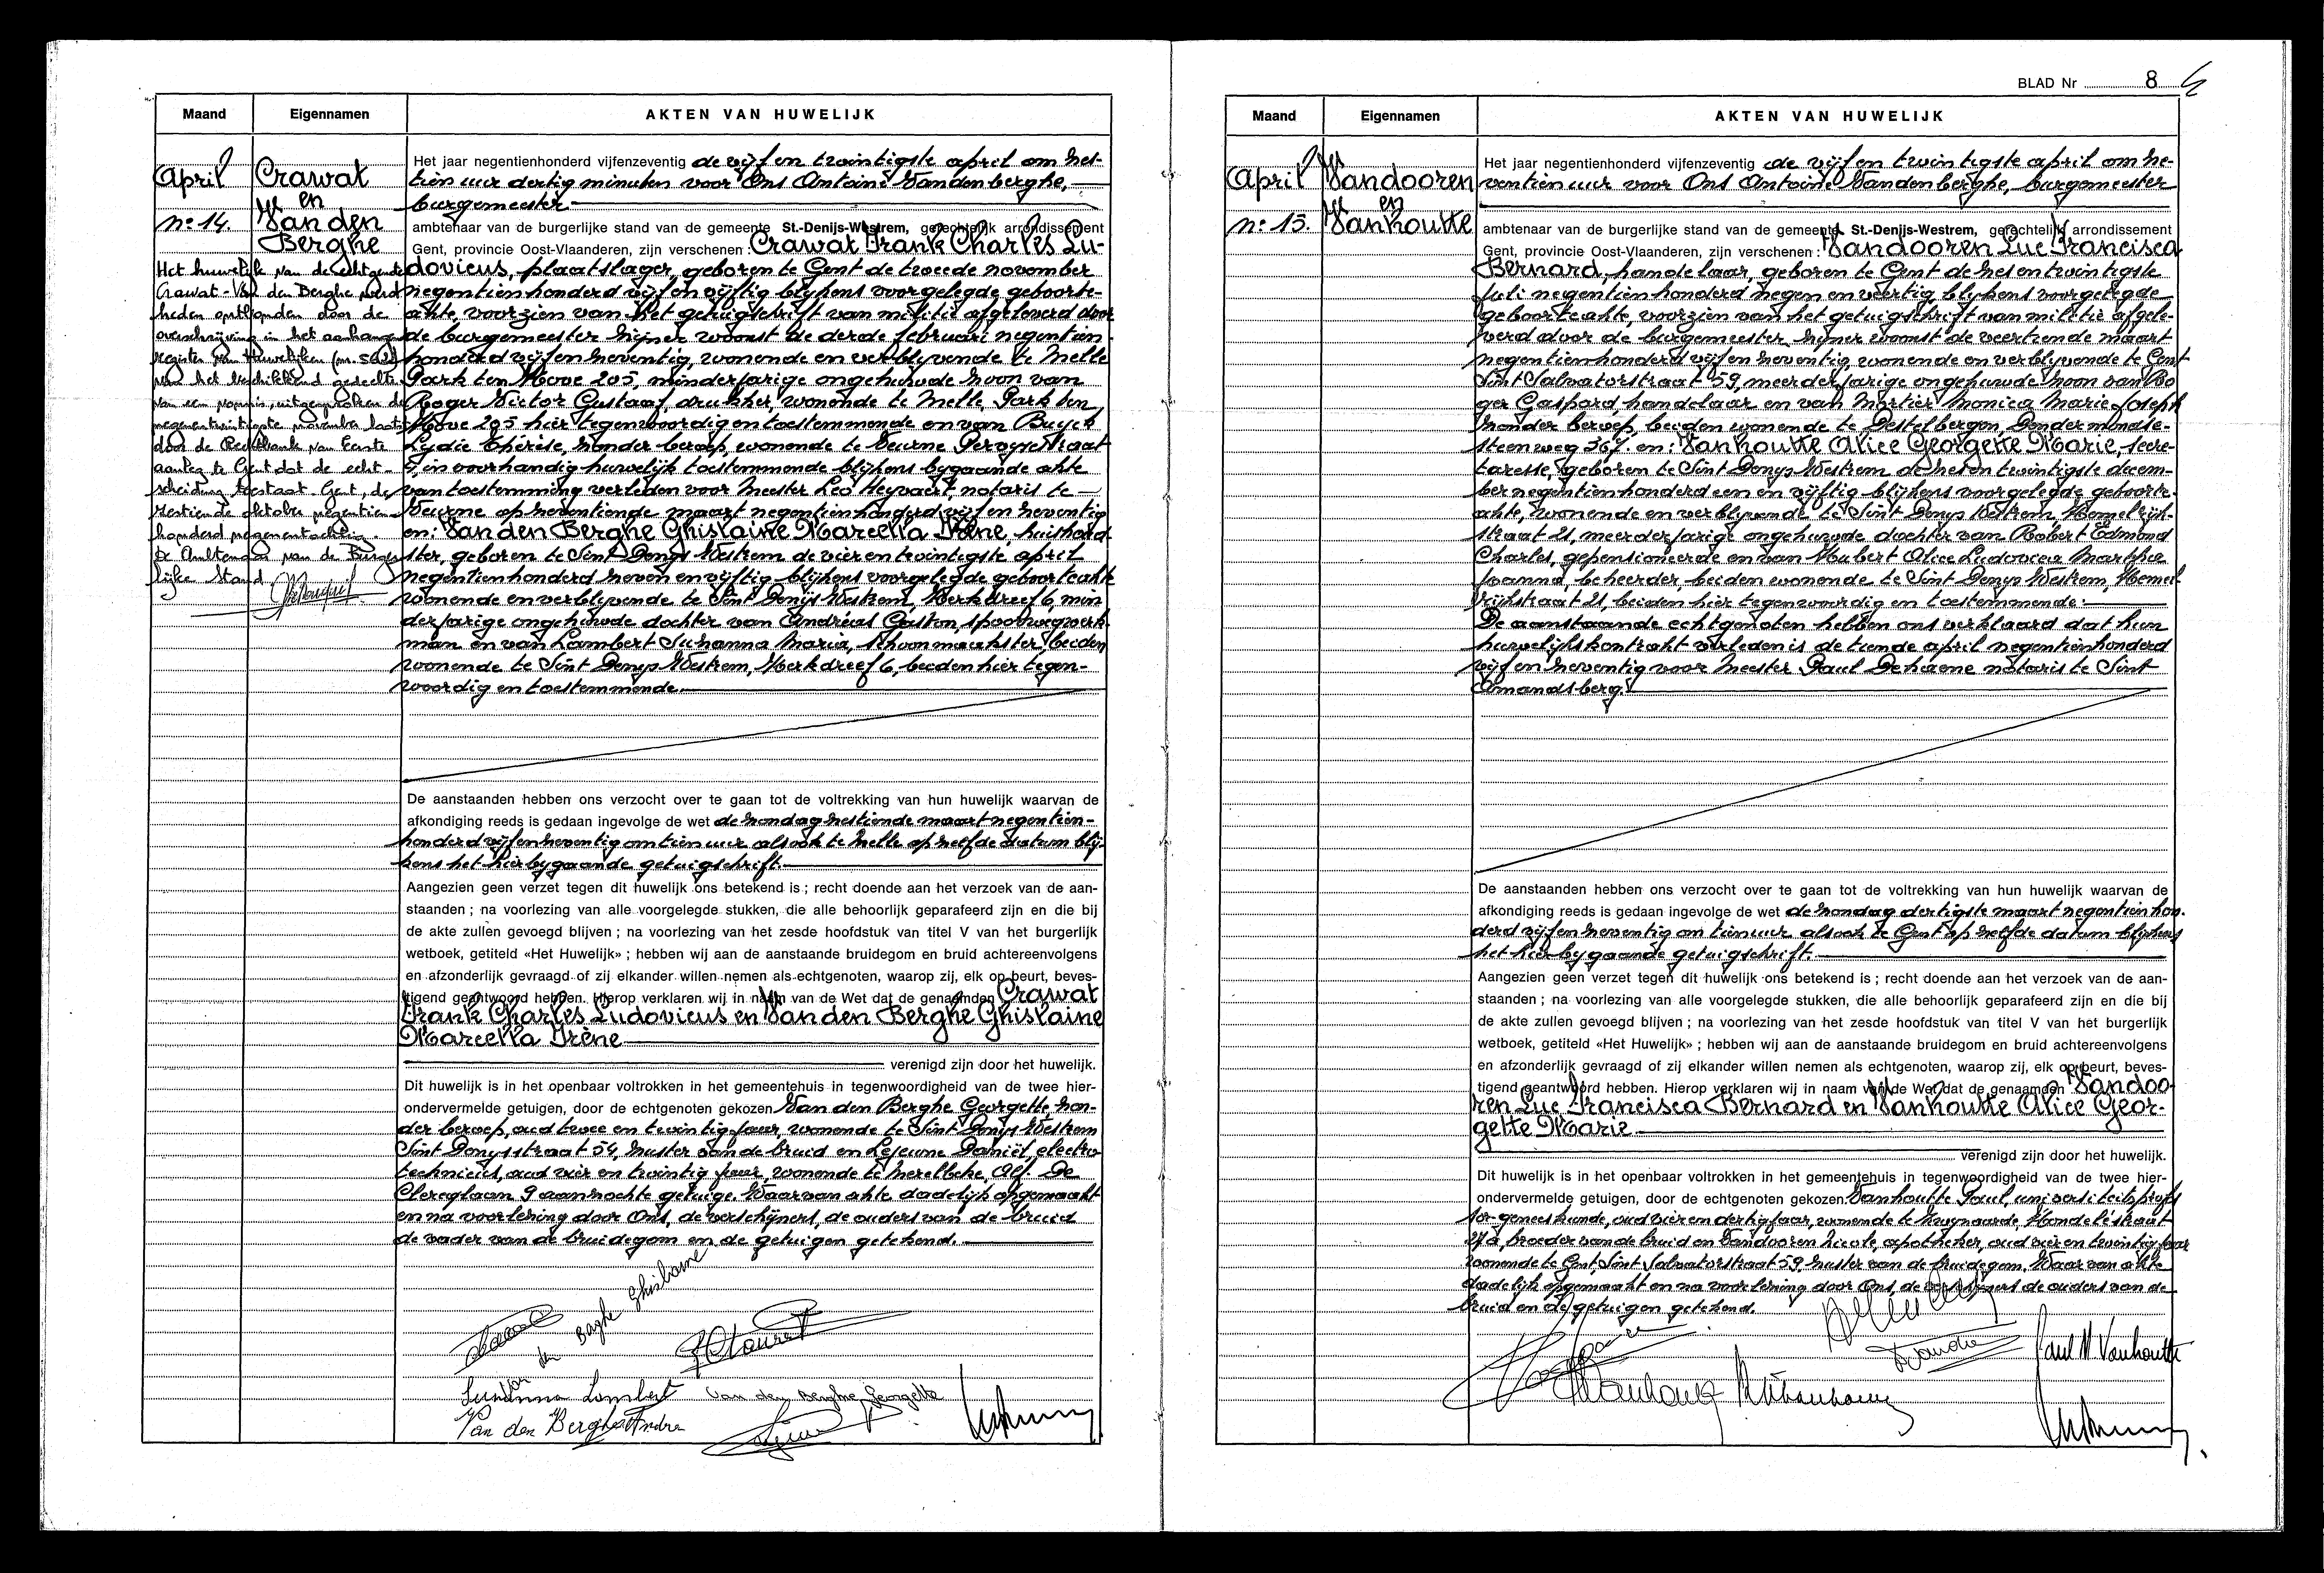 Maand Eigennamen AKTEN VAN HUWELIJK
April
n° 14.
Crawat
en
Van den
Berghe
Het huwelijk van de echtgenoten
Crawat-Van den Berghe werd
heden ontbonden door de
overschrijving in het aanhangend
register van huwelijken
van het beschikkend gedeelte
van een vonnis, uitgesproken de
negenentwintigste november laatst
door de Rechtbank van Eerste
aanleg te Gent dat de echt-
scheiding toestaat. Gent, de
zestiende oktober negentien-
honderd negenentachtig.
De Ambtenaar van de Burger
lijke Stand
Het jaar negentienhonderd vijfenzeventig de vijf en twintigste april om zes-
tien uur dertig minuten voor Ons Antoine Vandenberghe,
burgemeester
ambtenaar van de burgerlijke stand van de gemeente St.-Denijs-Westrem, gerechtelijk arrondissement
Gent, provincie Oost-Vlaanderen, zijn verschenen : Crawat Frank Charles Lu-
dovicus, plaatslager, geboren te Gent de tweede november
negentienhonderd vijf en vijftig blijkens voorgelegde geboorte-
akte, voorzien van het getuigschrift van militie afgeleverd door
de burgemeester zijner woonst de derde februari negentien-
honderd vijf en zeventig, wonende en verblijvende te Melle
Park ten Hove 205, minderjarige ongehuwde zoon van
Roger Victor Gustaaf, drukker, wonende te Melle, Park ten
Hove 205 hier tegenwoordig en toestemmende en van Buyck
Lydie Thérèse, zonder beroep, wonende te Deurne Pervysestraat
4, in voorhandig huwelijk toestemmende blijkens bijgaande akte
van toestemming verleden voor Meester Leo Heyvaert, notaris te
Deurne op zeventiende maart negentienhonderd vijf en zeventig
en: Van den Berghe Ghislaine Marcella Irène, huishoud-
ster, geboren te Sint Denijs Westrem de vier en twintigste april
negentienhonderd zeven en vijftig blijkens voorgelegde geboorteakte
wonende en verblijvende te Sint Denijs Westrem, Kerkdreef 6, min
derjarige ongehuwde dochter van Andreas Gaston, spoorwegwerk-
man en van Lambert Suzanna Maria, schoonmaakster, beiden
wonende te Sint Denijs Westrem, Kerkdreef 6, beiden hier tegen-
woordig en toestemmende.
De aanstaanden hebben ons verzocht over te gaan tot de voltrekking van hun huwelijk waarvan de
afkondiging reeds is gedaan ingevolge de wet de zondag zestiende maart negentien-
honderd vijf en zeventig om tien uur alsook te Melle op zelfde datum blij-
kens het hierbijgaande getuigschrift.
Aangezien geen verzet tegen dit huwelijk ons betekend is ; recht doende aan het verzoek van de aan-
staanden ; na voorlezing van alle voorgelegde stukken, die alle behoorlijk geparafeerd zijn en die bij
de akte zullen gevoegd blijven ; na voorlezing van het zesde hoofdstuk van titel V van het burgerlijk
wetboek, getiteld «Het Huwelijk» ; hebben wij aan de aanstaande bruidegom en bruid achtereenvolgens
en afzonderlijk gevraagd of zij elkander willen nemen als echtgenoten, waarop zij, elk op beurt, beves-
tigend geantwoord hebben. Hierop verklaren wij in naam van de Wet dat de genaamden Crawat
Frank Charles Ludovicus en Van den Berghe Ghislaine
Marcella Irène
verenigd zijn door het huwelijk.
Dit huwelijk is in het openbaar voltrokken in het gemeentehuis in tegenwoordigheid van de twee hier-
ondervermelde getuigen, door de echtgenoten gekozen Van den Berghe Georgette, zon-
der beroep, oud twee en twintig jaar, wonende te Sint Denijs Westrem
Sint Denijsstraat 54, zuster van de bruid en Lejeune Daniël, electro
technicus, oud vier en twintig jaar, wonende te Merelbeke, Alf. De
Clercqlaan 9 aanzochte getuige. Waarvan akte dadelijk opgemaakt
en na voorlezing door Ons, de verschijners, de ouders van de bruid
de vader van de bruidegom en de getuigen getekend.
Van den Berghe Ghislaine
Suzanna Lambert
Van den Berghe Georgette
Van den Berghe Andre
BLAD Nr 8
Maand Eigennamen AKTEN VAN HUWELIJK
April
n° 15.
Vandooren
en
Vanhoutte
Het jaar negentienhonderd vijfenzeventig de vijf en twintigste april om ze-
ventien uur voor Ons Antoine Vandenberghe, burgemeester
ambtenaar van de burgerlijke stand van de gemeente St.-Denijs-Westrem, gerechtelijk arrondissement
Gent, provincie Oost-Vlaanderen, zijn verschenen : Vandooren Luc Francisca
Bernard, handelaar, geboren te Gent de zes en twintigste
juli negentienhonderd negen en veertig blijkens voorgelegde
geboorteakte, voorzien van het getuigschrift van militie afgele-
verd door de burgemeester zijner woonst de veertiende maart
negentienhonderd vijf en zeventig, wonende en verblijvende te Gent
Sint Salvatorstraat 59, meerderjarige ongehuwde zoon van Ro
ger Gaspard, handelaar en van Mortier Monica Marie Joseph
zonder beroep, beiden wonende te Destelbergen, Dendermondse-
steenweg 367. en: Vanhoutte Alice Georgette Marie, secre-
taresse, geboren te Sint Denijs Westrem de zes en twintigste decem-
ber negentienhonderd een en vijftig blijkens voorgelegde geboorte-
akte, wonende en verblijvende te Sint Denijs Westrem, Hemelrijk-
straat 21, meerderjarige ongehuwde dochter van Robert Edmond
Charles, gepensioneerde en van Hubert Alice Ludovica Martha
Joanna, beheerder, beiden wonende te Sint Denijs Westrem, Hemel
rijkstraat 21, beiden hier tegenwoordig en toestemmende.
De aanstaande echtgenoten hebben ons verklaard dat hun
huwelijkskontrakt verleden is de tiende april negentienhonderd
vijf en zeventig voor Meester Paul Dehaene notaris te Sint
Amandsberg.
De aanstaanden hebben ons verzocht over te gaan tot de voltrekking van hun huwelijk waarvan de
afkondiging reeds is gedaan ingevolge de wet de zondag dertigste maart negentien hon-
derd vijf en zeventig om tien uur alsook te Gent op zelfde datum blijkens
het hierbijgaande getuigschrift.
Aangezien geen verzet tegen dit huwelijk ons betekend is ; recht doende aan het verzoek van de aan-
staanden ; na voorlezing van alle voorgelegde stukken, die alle behoorlijk geparafeerd zijn en die bij
de akte zullen gevoegd blijven ; na voorlezing van het zesde hoofdstuk van titel V van het burgerlijk
wetboek, getiteld «Het Huwelijk» ; hebben wij aan de aanstaande bruidegom en bruid achtereenvolgens
en afzonderlijk gevraagd of zij elkander willen nemen als echtgenoten, waarop zij, elk op beurt, beves-
tigend geantwoord hebben. Hierop verklaren wij in naam van de Wet dat de genaamden Vandoo-
ren Luc Francisca Bernard en Vanhoutte Alice Geor-
gette Marie
verenigd zijn door het huwelijk.
Dit huwelijk is in het openbaar voltrokken in het gemeentehuis in tegenwoordigheid van de twee hier-
ondervermelde getuigen, door de echtgenoten gekozen Vanhoutte Paul, universiteitsprofes
sor geneeskunde, oud vier en dertig jaar, wonende te Zwijnaarde,
broeder van de bruid en Vandooren Nicole, apotheker, oud vier en twintig jaar
wonende te Gent, Sint Salvatorstraat 59 zuster van de bruidegom. Waarvan akte
dadelijk opgemaakt en na voorlezing door Ons, de verschijners de ouders van de
bruid en de getuigen getekend.
Paul M Vanhoutte